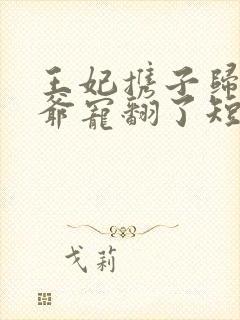 王妃携子歸
爺寵翻了短
戈莉